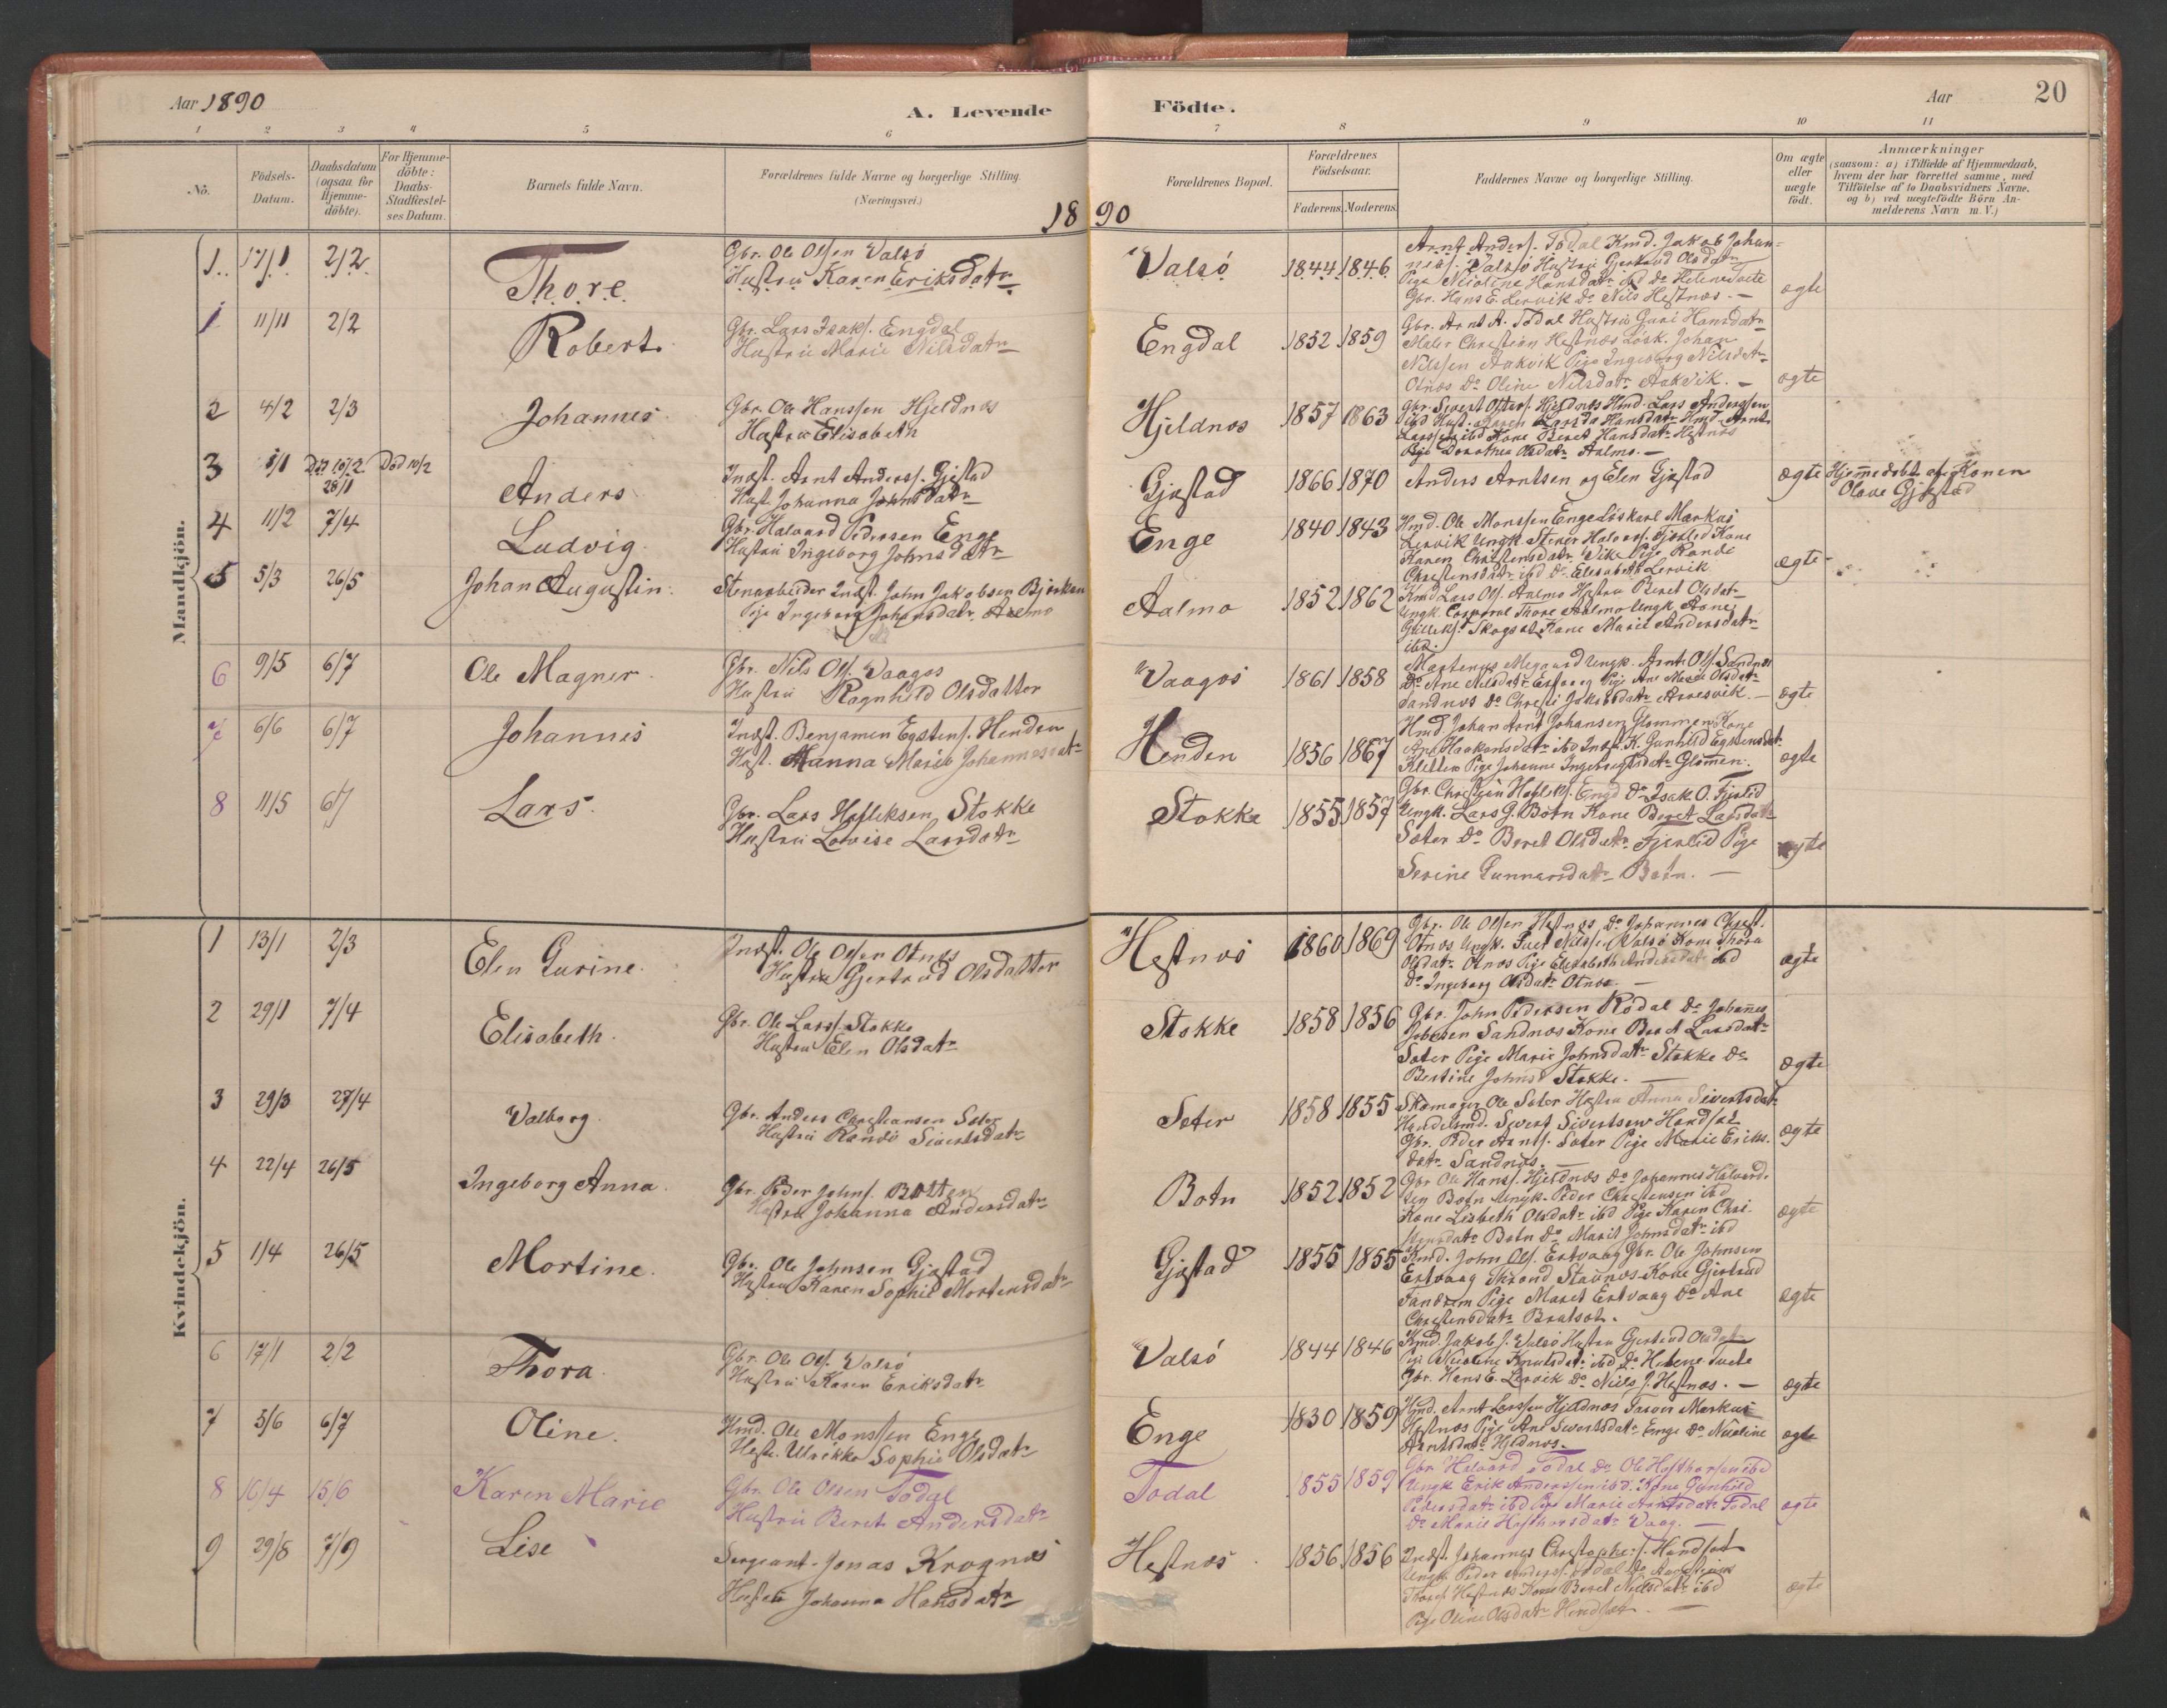 Aar 1890
A. Levende
Födte.
Aar
20
1 2 3 4 5 6 7 8 9 10 11
No.
Födsels-Datum.
Daabsdatum (ogsaa for Hjemme-döbte).
For Hjemme-döbte: Daabs-Stadfæstel-ses Datum.
Barnets fulde Navn.
Forældrenes fulde Navne og borgerlige Stilling.
(Næringsvei.)
Forældrenes Bopæl.
Forældrenes Födselsaar.
Faderens. Moderens.
Faddernes Navne og borgerlige Stilling.
Om ægte eller uægte födt.
Anmærkninger
(saasom: a) i Tilfælde af Hjemmedaab, hvem der har forrettet samme, med Tilföielse af to Daabsvidners Navne. og b) ved uægtefödte Börn An-melderens Navn m. V.)
18 90
Mandkjön.
1. 17/1 2/2 Thore
Gbr. Ole Olsen Valsö
Hustru Karen Eriksdatr
Valsö 1844 1846
Arnt Anders. Todal Kmd. Jakob Johan-
nes. Valsö Hustru Gjertrud Olsdatr
Pige Nicoline Hansdatr
Gbr. Hans E. Lervik Do Nils Hestnæs. ægte
1 11/11 2/2 Robert
Gbr. Lars Isaks. Engdal
Hustru Marie Nilsdatr
Engdal 1852 1859
Gbr. Arnt A. Todal Hustru Guri Hansdatr
Maler Christian Hestnæs Løsk. Johan
Nilssen Aakvik Pige Ingeborg Nilsdatr
Otnæs Do Oline Nilsdatr Aakvik. ægte
2 4/2 2/3 Johannes
Gbr. Ole Hanssen Hjeldnæs
Hustru Elisabeth
Hjeldnæs 1857 1863
Gbr. Sivert Hjeldnæs Hmd. Lars Anderssen
Larssen ibd Kone Beret Hansdatr Hestnæs
Pige Dorothea Olsdatr Aalmo.
3 Död 10/2 28/1 Död 10/2 Anders
Indst. Arnt Anderss. Gjøstad
Hust. Johanna Johnsdatr
Gjøstad 1866 1870
Anders Arntsen og Elen Gjøstad
ægte Hjemmedöbt af Konen
Olave Gjøstad
4 11/2 7/4 Ludvig
Gbr. Halvard Pedersen Enge
Hustru Ingeborg Johnsdatr
Enge 1840 1843
Hmd. Ole Monssen Enge Löskarl Markus
Lervik Ungk. Stener Halvors. Fjærlid Kone
Karen Christensdatr Vike Pige Randi
Christensdatr ibd Do Elisabeth Lervik ægte
5 5/3 26/5 Johan Augustin
Stenarbeider Indst. John Jakobsen Bjerken
Pige Ingeborg Johansdatr. Aalmo
Aalmo 1852 1862
Kmd Lars Ols. Aalmo Hustru Beret Olsdatr
Ungk. Corporal Thore Aalmo Ungk. Aane
Skogset Kone Marie Andersdatr
ibd.
6 9/5 6/7 Ole Magner
Gbr. Nils Ols. Vaagos
Hustru Ragnhild Olsdatter
Vaagos 1861 1858
Martenus Megaard Ungk. Arnt Ols. Sandnæs
Do Ane Nilsdatr Estvaag Pige Ane Marie Olsdatr
Sandnæs Do Christi Jakobsdatr Arnesvik ægte
7 6/6 6/7 Johannes
Indst. Benjamin Egstens. Henden
Hust. Hanna Marie Johannesdatr
Henden 1856 1867
Hmd Johan Arnt Johansen Glommen Kone
Ane Haakonsdatr ibd Indst. K. Gunhild Egstensdatr
Kletten Pige Johanne Ingebrigtsdatr Glomen. ægte
8 11/5 6/7 Lars
Gbr. Lars Halleksen Stokke
Hustru Lovise Larsdatr
Stokke 1855 1857
Gbr. Christian Engd Do Isak O. Fjærlid
Ungk. Lars G. Botn Kone Beret Larsdatr
Sæter Do Beret Olsdatr Fjerlid Pige
Serine Gunnarsdatr Botn. ægte
Kvindekjön.
1 13/1 2/3 Elen Gurine
Indst. Ole Olsen Otnes
Hustru Gjertrud Olsdatter
Hestnæs 1860 1869
Gbr. Ole Olsen Hestnæs Do Johannes Christ.
Otnæs Ungk. Nilssen Valsö Kone Thora
Olsdatr Otnæs Pige Elisabeth Andersdatr ibd
Do Ingeborg Olsdatr Otnæs. ægte
2 29/1 7/4 Elisabeth
Gbr. Ole Larss. Stokke
Hustru Elen Olsdatr
Stokke 1858 1856
Gbr. John Pedersen Rödal Do Johannes
Jobssen Sandnæs Kone Beret Larsdatr
Sæter Pige Marie Johnsdatr Stokke Do
Bertine Johnsd Stokke. ægte
3 29/3 27/4 Valborg
Gbr. Anders Christiansen Sæter
Hustru Randi Sivertsdatr
Seter 1858 1855
Skomager Ole Sæter Hustru Anna Sivertsdatr
Handelsmd. Sivert Sivertsen Handsæt
Gbr. Peder Arnts. Sæter Pige Marie Eriks-
datr Sandnæs. ægte
4 22/4 26/5 Ingeborg Anna
Gbr. Peder Johns. Botten
Hustru Johanna Andersdatr
Botn 1852 1852
Gbr Ole Hanss. Hjeldnæs Do Johannes Halvard-
sen Botn Ungk. Peder Christensen ibd
Kone Lisbeth Olsdatr ibd Pige Karen Chri-
stensdatr Botn Do Marit Johnsdatr ibd ægte
5 1/4 26/5 Mortine
Gbr. Ole Johnsen Gjøstad
Hustru Karen Sophie Mortensdatr
Gjøstad 1855 1855
Kmd. John Ols. Estvaag Gbr. Ole Johnsen
Estvaag Thrond Stavnæs Kone Gjertrud
Fandrem Pige Maret Estvaag Do Ane
Christensdatr Bratset. ægte
6 17/1 2/2 Thora
Gbr. Ole Ols. Valsö
Hustru Karen Eriksdatr
Valsö 1844 1846
Kmd. Jakob J. Valsö Hustru Gjertrud Olsdatr
Pige Nicoline Knutsdatr ibd Do Helene
Gbr. Hans E. Lervik Do Niels J. Hestnæs. ægte
7 5/6 6/7 Oline
Hmd. Ole Monssen Enge
Hustr. Ulrikke Sophie Olsdatr
Enge 1830 1859
Hmd. Arnt Larssen Hjeldnæs Markus
Hestnæs Pige Ane Sivertsdatr Enge Do Nicoline
Arntsdatr Hjeldnæs. ægte
8 16/4 15/6 Karen Marie
Gbr. Ole Olsen Todal
Hustru Beret Andersdatr
Todal 1855 1859
Gbr Halvard Todal Do Ole Hafthorsen ibd
Ungk Erik Anderssen ibd. Kone Gunhild
Pedersdatr ibd Pige Marie Arntsdatr Todal
Do Marie Hafthorsdatr Vaag. ægte
9 29/8 7/9 Lise
Sergeant Jonas Krognæs
Hustru Johanna Hansdatr
Hestnæs 1856 1856
Indst. Johannes Christophers. Handsæt
Ungk Peder Anderss. Todal Do
Hestnæs Kone Beret Nielsdatr ibd
Pige Oline Olsdatr Hendset ægte